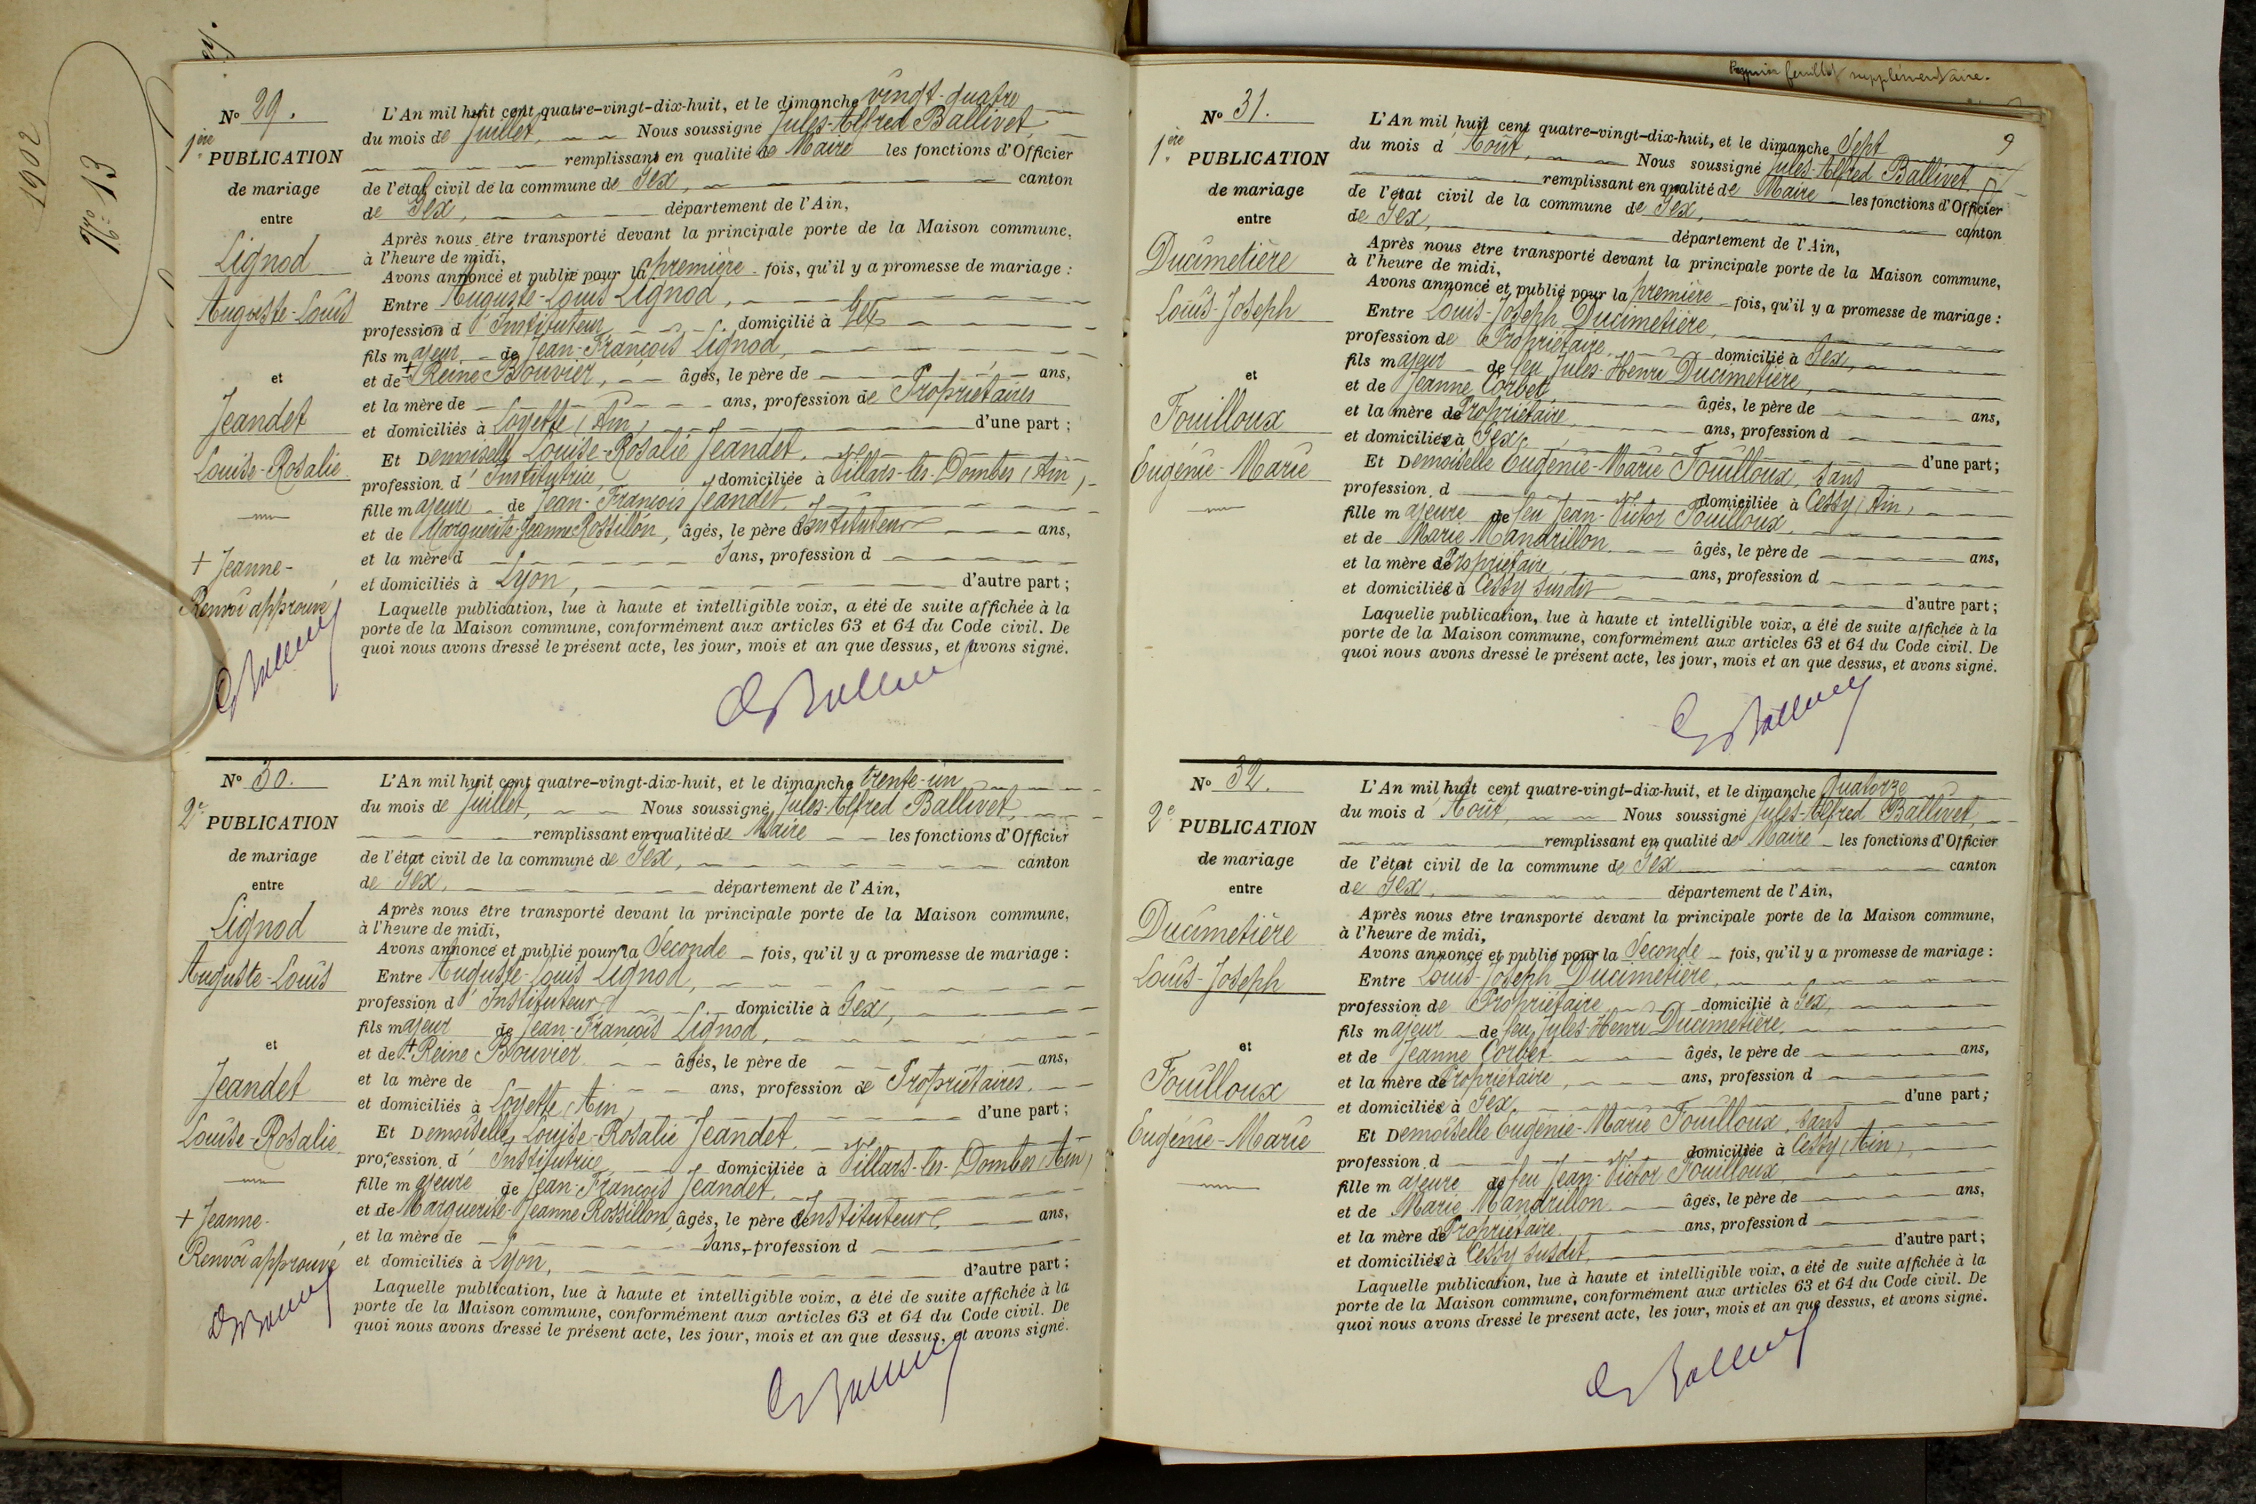 1902
No 13
No 29.
1ère PUBLICATION
de mariage
entre
Lignod
Auguste-Louis
et
Jeandet
Louise-Rosalie
+ Jeanne-
Renvoi approuvé
L'An mil huit cent quatre-vingt-dix-huit, et le dimanche vingt-quatre
du mois de Juillet, Nous soussigné Jules-Alfred Ballivet,
remplissant en qualité de Maire les fonctions d'Officier
de l'état civil de la commune de Gex, canton
de Gex, département de l'Ain,
Après nous être transporté devant la principale porte de la Maison commune,
à l'heure de midi,
Avons annoncé et publié pour la première fois, qu'il y a promesse de mariage :
Entre Auguste-Louis Lignod,
profession d'Instituteur domicilié à Gex
fils majeur de Jean-François Lignod,
et de + Reine Bouvier, âgés, le père de ans,
et la mère de ans, profession de Propriétaires
et domiciliés à Loyette (Ain) d'une part ;
Et Demoiselle Louise-Rosalie Jeandet,
profession d'Institutrice domiciliée à Villars-les-Dombes (Ain)
fille majeure de Jean-François Jeandet
et de Marguerite-Jeanne Rossillon, âgés, le père de Instituteur ans,
et la mère d Sans, profession d
et domiciliés à Lyon, d'autre part ;
Laquelle publication, lue à haute et intelligible voix, a été de suite affichée à la
porte de la Maison commune, conformément aux articles 63 et 64 du Code civil. De
quoi nous avons dressé le présent acte, les jour, mois et an que dessus, et avons signé.
No 30.
2e PUBLICATION
de mariage
entre
Lignod
Auguste-Louis
et
Jeandet
Louise-Rosalie
+ Jeanne-
Renvoi approuvé
L'An mil huit cent quatre-vingt-dix-huit, et le dimanche trente-un
du mois de Juillet, Nous soussigné Jules-Alfred Ballivet,
remplissant en qualité de Maire les fonctions d'Officier
de l'état civil de la commune de Gex, canton
de Gex, département de l'Ain,
Après nous être transporté devant la principale porte de la Maison commune,
à l'heure de midi,
Avons annoncé et publié pour la Seconde fois, qu'il y a promesse de mariage :
Entre Auguste-Louis Lignod,
profession d'Instituteur domicilié à Gex,
fils majeur de Jean-François Lignod,
et de + Reine Bouvier âgés, le père de ans,
et la mère de ans, profession de Propriétaires
et domiciliés à Loyette (Ain) d'une part ;
Et Demoiselle Louise-Rosalie Jeandet
profession d'Institutrice domiciliée à Villars-les-Dombes (Ain)
fille majeure de Jean-François Jeandet
et de Marguerite-Jeanne Rossillon, âgés, le père de Instituteur ans,
et la mère de Sans, profession d
et domiciliés à Lyon, d'autre part ;
Laquelle publication, lue à haute et intelligible voix, a été de suite affichée à la
porte de la Maison commune, conformément aux articles 63 et 64 du Code civil. De
quoi nous avons dressé le présent acte, les jour, mois et an que dessus, et avons signé.
feuillet supplémentaire.
9
No 31.
1ère PUBLICATION
de mariage
entre
Ducimetière
Louis-Joseph
et
Fouilloux
Eugénie-Marie
L'An mil huit cent quatre-vingt-dix-huit, et le dimanche Sept
du mois d'Août, Nous soussigné Jules-Alfred Ballivet,
remplissant en qualité de Maire les fonctions d'Officier
de l'état civil de la commune de Gex, canton
de Gex, département de l'Ain,
Après nous être transporté devant la principale porte de la Maison commune,
à l'heure de midi,
Avons annoncé et publié pour la première fois, qu'il y a promesse de mariage :
Entre Louis-Joseph Ducimetière,
profession de Propriétaire domicilié à Gex,
fils majeur de feu Jules-Henri Ducimetière,
et de Jeanne Corbet âgés, le père de ans,
et la mère de Propriétaire ans, profession d
et domiciliée à Gex, d'une part ;
Et Demoiselle Eugénie-Marie Fouilloux, sans
profession d domiciliée à Cessy (Ain),
fille majeure de feu Jean-Victor Fouilloux,
et de Marie Mandrillon âgés, le père de ans,
et la mère de Propriétaire ans, profession d
et domiciliée à Cessy susdit d'autre part ;
Laquelle publication, lue à haute et intelligible voix, a été de suite affichée à la
porte de la Maison commune, conformément aux articles 63 et 64 du Code civil. De
quoi nous avons dressé le présent acte, les jour, mois et an que dessus, et avons signé.
No 32.
2e PUBLICATION
de mariage
entre
Ducimetière
Louis-Joseph
et
Fouilloux
Eugénie-Marie
L'An mil huit cent quatre-vingt-dix-huit, et le dimanche Quatorze
du mois d'Août, Nous soussigné Jules-Alfred Ballivet,
remplissant en qualité de Maire les fonctions d'Officier
de l'état civil de la commune de Gex canton
de Gex, département de l'Ain,
Après nous être transporté devant la principale porte de la Maison commune,
à l'heure de midi,
Avons annoncé et publié pour la Seconde fois, qu'il y a promesse de mariage :
Entre Louis-Joseph Ducimetière,
profession de Propriétaire domicilié à Gex,
fils majeur de feu Jules-Henri Ducimetière,
et de Jeanne Corbet âgés, le père de ans,
et la mère de Propriétaire, ans, profession d
et domiciliée à Gex d'une part ;
Et Demoiselle Eugénie-Marie Fouilloux, sans
profession d domiciliée à Cessy (Ain),
fille majeure de feu Jean-Victor Fouilloux
et de Marie Mandrillon âgés, le père de ans,
et la mère de Propriétaire ans, profession d
et domiciliée à Cessy susdit, d'autre part ;
Laquelle publication, lue à haute et intelligible voix, a été de suite affichée à la
porte de la Maison commune, conformément aux articles 63 et 64 du Code civil. De
quoi nous avons dressé le présent acte, les jour, mois et an que dessus, et avons signé.